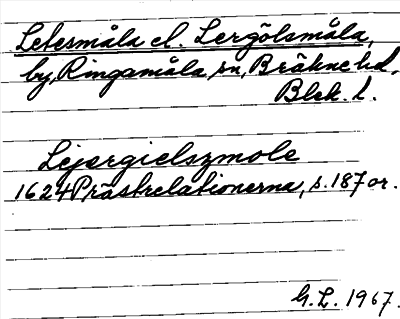 Letesmåla el. Lergölsmåla,
by, Ringamåla sn, Bräkne hd,
Blek. l.
Lejergielszmole
1624 Prästrelationerna, s. 187 or.
G.L. 1967.